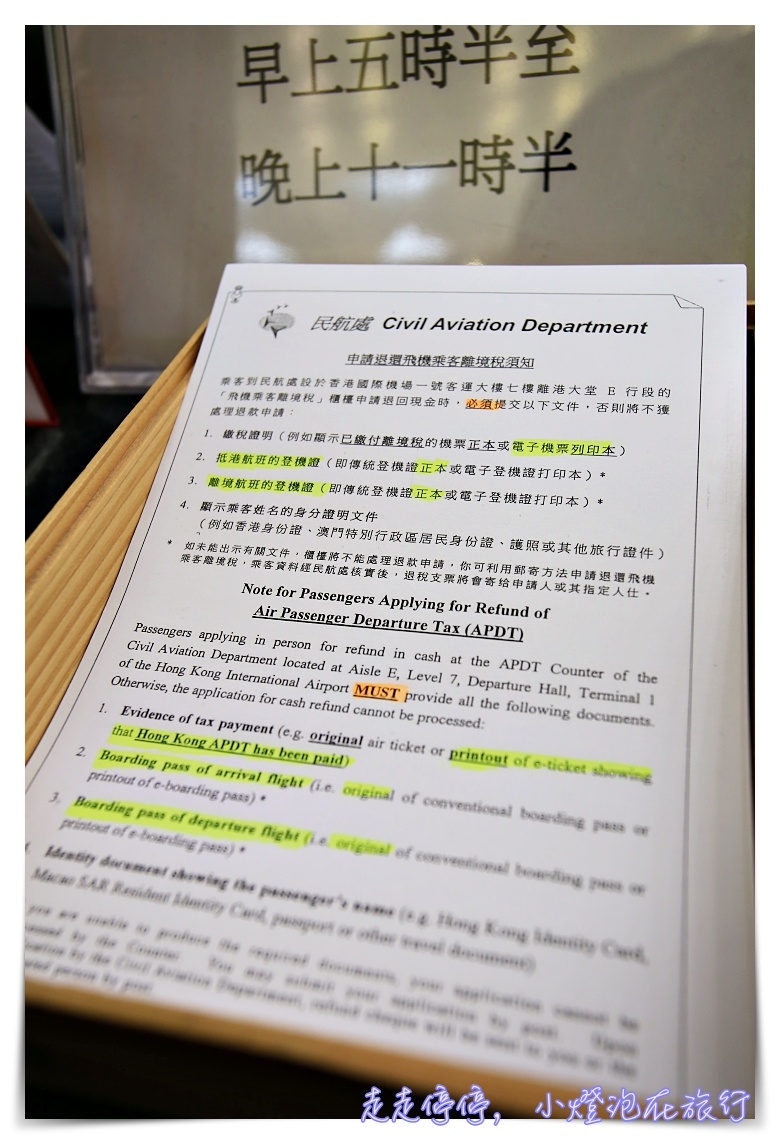 早上五時半至
晚上十一時半
民航處 Civil Aviation Department
申請退還飛機乘客離境稅須知
乘客到民航處設於香港國際機場一號客運大樓七樓離港大堂 E 行段的
「飛機乘客離境稅」櫃檯申請退回現金時，必須提交以下文件，否則將不獲
處理退款申請：
1. 繳稅證明（例如顯示已繳付離境稅的機票正本或電子機票列印本）
2. 抵港航班的登機證（即傳統登機證正本或電子登機證打印本）*
3. 離境航班的登機證（即傳統登機證正本或電子登機證打印本）*
4. 顯示乘客姓名的身分證明文件
（例如香港身份證、澳門特別行政區居民身份證、護照或其他旅行證件）
* 如未能出示有關文件，櫃檯將不能處理退款申請，你可利用郵寄方法申請退還飛機
乘客離境稅，乘客資料經民航處核實後，退稅支票將會寄給申請人或其指定人仕。
Note for Passengers Applying for Refund of
Air Passenger Departure Tax (APDT)
Passengers applying in person for refund in cash at the APDT Counter of the
Civil Aviation Department located at Aisle E, Level 7, Departure Hall, Terminal 1
of the Hong Kong International Airport MUST provide all the following documents.
Otherwise, the application for cash refund cannot be processed:
1. Evidence of tax payment (e.g. original air ticket or printout of e-ticket showing
that Hong Kong APDT has been paid)
2. Boarding pass of arrival flight (i.e. original of conventional boarding pass or
printout of e-boarding pass) *
3. Boarding pass of departure flight (i.e. original of conventional boarding pass or
printout of e-boarding pass) *
Identity document showing the passenger's name (e.g. Hong Kong Identity Card,
Macao SAR Resident Identity Card, passport or other travel document)
you are unable to produce the required documents, your application cannot be
by the Counter. You may submit your application by post. Upon
by the Civil Aviation Department, refund cheque will be sent to you or the
person by post.
走走停停，小燈泡在旅行